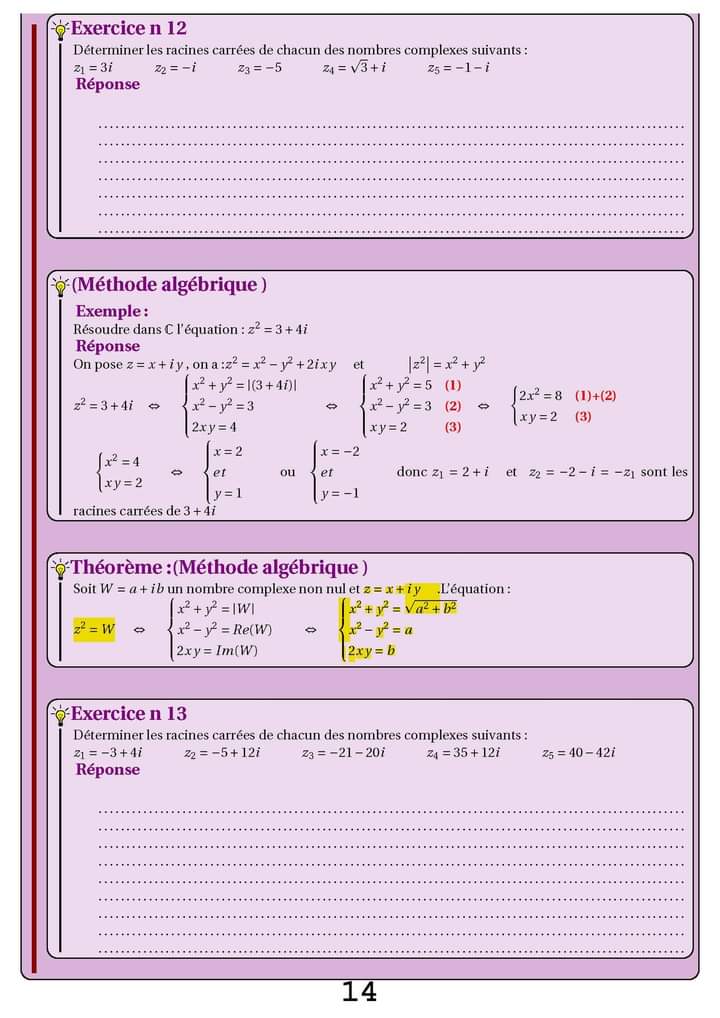 Exercice n 12
Déterminer les racines carrées de chacun des nombres complexes suivants :
z₁ = 3i z₂ = −i z₃ = −5 z₄ = √3 + i z₅ = −1 − i
Réponse
(Méthode algébrique )
Exemple :
Résoudre dans ℂ l'équation : z² = 3 + 4i
Réponse
On pose z = x + iy , on a :z² = x² − y² + 2ixy et |z²| = x² + y²
z² = 3 + 4i ⇔ { x² + y² = |(3 + 4i)| x² − y² = 3 2xy = 4 ⇔ { x² + y² = 5 (1) x² − y² = 3 (2) xy = 2 (3) ⇔ { 2x² = 8 (1)+(2) xy = 2 (3)
{ x² = 4 xy = 2 ⇔ { x = 2 et y = 1 ou { x = −2 et y = −1 donc z₁ = 2 + i et z₂ = −2 − i = −z₁ sont les
racines carrées de 3 + 4i
Théorème :(Méthode algébrique )
Soit W = a + ib un nombre complexe non nul et z = x + iy .L'équation :
z² = W ⇔ { x² + y² = |W| x² − y² = Re(W) 2xy = Im(W) ⇔ { x² + y² = √a² + b² x² − y² = a 2xy = b
Exercice n 13
Déterminer les racines carrées de chacun des nombres complexes suivants :
z₁ = −3 + 4i z₂ = −5 + 12i z₃ = −21 − 20i z₄ = 35 + 12i z₅ = 40 − 42i
Réponse
14